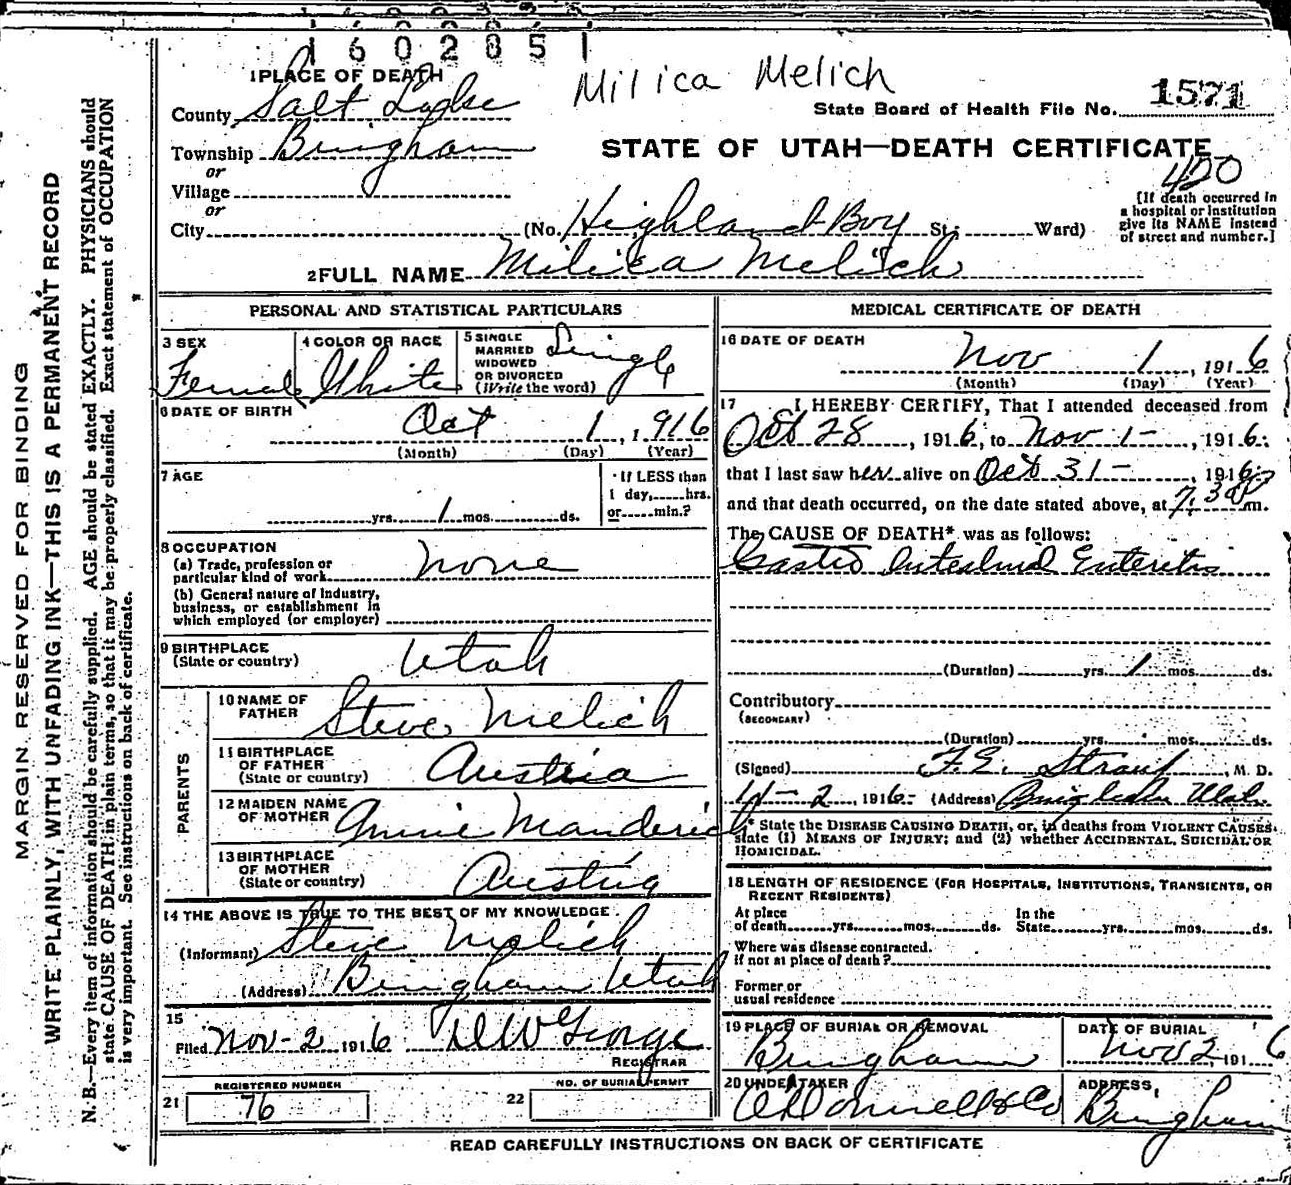 1602851
1 PLACE OF DEATH
Milica Melich
County Salt Lake
State Board of Health File No. 1571
Township Bingham
STATE OF UTAH—DEATH CERTIFICATE
or
420
Village
or
City (No. Highland Boy St.; Ward)
[If death occurred in
a hospital or institution
give its NAME instead
of street and number.]
2 FULL NAME Milica Melich
PERSONAL AND STATISTICAL PARTICULARS
3 SEX
Female
4 COLOR OR RACE
White
5 SINGLE
MARRIED
WIDOWED
OR DIVORCED
(Write the word)
Single
6 DATE OF BIRTH
Oct 1, 1916
(Month) (Day) (Year)
7 AGE
yrs. 1 mos. ds.
If LESS than
1 day, hrs.
or min.?
8 OCCUPATION
(a) Trade, profession or
particular kind of work. none
(b) General nature of Industry,
business, or establishment in
which employed (or employer)
9 BIRTHPLACE
(State or country) Utah
PARENTS
10 NAME OF
FATHER Steve Melich
11 BIRTHPLACE
OF FATHER
(State or country) Austria
12 MAIDEN NAME
OF MOTHER Annie Manderich
13 BIRTHPLACE
OF MOTHER
(State or country) Austria
14 THE ABOVE IS TRUE TO THE BEST OF MY KNOWLEDGE
(Informant) Steve Melich
(Address) Bingham Utah
15
Filed Nov-2 1916 DW George
REGISTRAR
REGISTERED NUMBER
21 76
NO. OF BURIAL PERMIT
22
MEDICAL CERTIFICATE OF DEATH
16 DATE OF DEATH
Nov 1, 1916
(Month) (Day) (Year)
17 I HEREBY CERTIFY, That I attended deceased from
Oct 28, 1916, to Nov 1-, 1916:
that I last saw her alive on Oct 31-, 1916
and that death occurred, on the date stated above, at 7:30 P m.
The CAUSE OF DEATH* was as follows:
Gastro Intestinal Enteritis
(Duration) yrs. 1 mos. ds.
Contributory
(SECONDARY)
(Duration) yrs. mos. ds.
(Signed) F.E. Straup, M. D.
11-2, 1916- (Address) Bingham Utah
* State the DISEASE CAUSING DEATH, or, in deaths from VIOLENT CAUSES,
state (1) MEANS OF INJURY; and (2) whether ACCIDENTAL, SUICIDAL OR
HOMICIDAL.
18 LENGTH OF RESIDENCE (FOR HOSPITALS, INSTITUTIONS, TRANSIENTS, OR
RECENT RESIDENTS)
At place
of death yrs. mos. ds.
In the
State yrs. mos. ds.
Where was disease contracted.
if not at place of death?
Former or
usual residence
19 PLACE OF BURIAL OR REMOVAL
Bingham
DATE OF BURIAL
Nov 2, 1916
20 UNDERTAKER
O'Donnell & Co
ADDRESS,
Bingham
READ CAREFULLY INSTRUCTIONS ON BACK OF CERTIFICATE
MARGIN RESERVED FOR BINDING
WRITE PLAINLY, WITH UNFADING INK—THIS IS A PERMANENT RECORD
N. B.—Every item of information should be carefully supplied. AGE should be stated EXACTLY. PHYSICIANS should
state CAUSE OF DEATH in plain terms, so that it may be properly classified. Exact statement of OCCUPATION
is very important. See instructions on back of certificate.